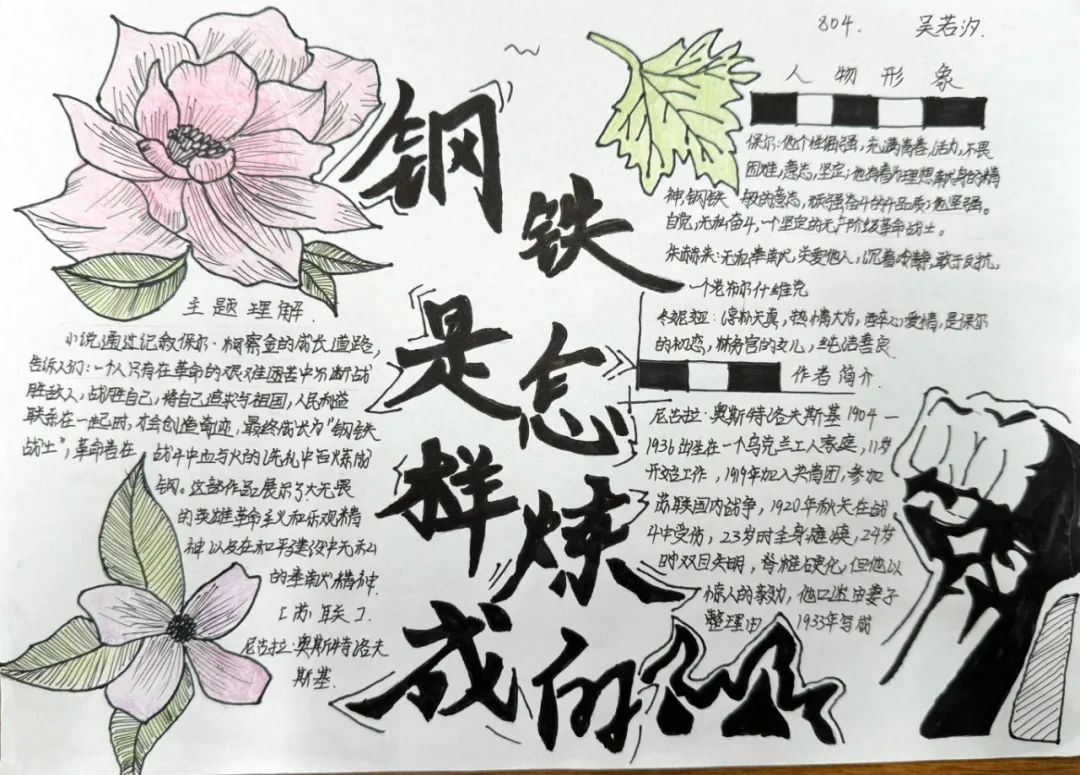 804. 吴若汐.
钢铁是怎样炼成的
人物形象
保尔：他个性倔强，充满青春，活力，不畏
困难，意志，坚定；他有着为理想献身的精
神，钢铁般的意志，顽强奋斗的品质；他坚强。
自觉，无私奋斗，一个坚定的无产阶级革命战士。
朱赫来：无私奉献，关爱他人，沉着冷静，敢于反抗，
一个老布尔什维克
冬妮娅：淳朴天真，热情大方，爱情，是保尔
的初恋，林务官的女儿，纯洁善良.
作者简介.
尼古拉·奥斯特洛夫斯基1904—
1936出生在一个乌克兰工人家庭，11岁
开始工作，1919年加入共青团，参加
苏联国内战争，1920年秋天在战
斗中受伤，23岁时全身瘫痪，24岁
时双目失明，脊椎硬化，但他以
惊人的毅力，他口述由妻子
整理由 1933年写成
主题理解.
小说通过记叙保尔·柯察金的成长道路，
告诉人们：一个人只有在革命的艰难困苦中不断战
胜敌人，战胜自己，将自己追求与祖国，人民利益
联系在一起时，才会创造奇迹，最终成长为“钢铁
战士”，革命者在战斗中血与火的洗礼中百炼成
钢。这部作品展示了大无畏
的英雄革命主义和乐观精
神以及在和平建设中无私
的奉献精神.
［苏联］.
尼古拉·奥斯特洛夫
斯基.